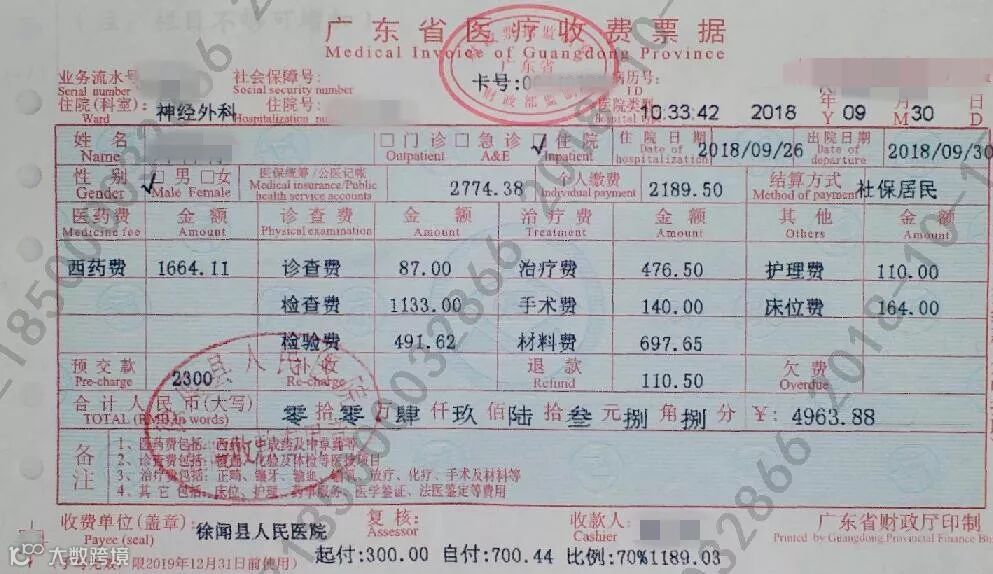 广东省医疗收费票据
Medical Invoice of Guangdong Province
业务流水号 社会保障号: 卡号:0 病历号:
Serial number Social security number ID
住院(科室): 神经外科 住院号: 医院类型 10:33:42 2018 年 09 月 30 日
Ward Hospitalization number Hospital type Y M D
姓名 □门诊 □急诊 √住院 住院日期 2018/09/26 出院日期 2018/09/30
Name Outpatient A&E Inpatient Date of hospitalization Date of departure
性别 √□男 □女 医保统筹/公医记账 2774.38 个人缴费 2189.50 结算方式 社保居民
Gender Male Female Medical insurance/Public health service accounts Individual payment Method of payment
医药费 金额 诊查费 金额 治疗费 金额 其他 金额
Medicine fee Amount Physical examination Amount Treatment Amount Others Amount
西药费 1664.11 诊查费 87.00 治疗费 476.50 护理费 110.00
检查费 1133.00 手术费 140.00 床位费 164.00
检验费 491.62 材料费 697.65
预交款 2300 补收 退款 110.50 欠费
Pre-charge Re-charge Refund Overdue
合计人民币(大写) 零拾零万肆仟玖佰陆拾叁元捌角捌分 ¥: 4963.88
TOTAL (RMB in words)
备注
1、医药费包括: 西药、中成药及中草药等
2、诊查费包括: 化验及体检等医技项目
3、治疗费包括: 正畸、镶牙、输血、输氧、放疗、化疗、手术及材料等
4、其它包括: 床位、护理、药事服务、医学鉴证、法医鉴定等费用
收费单位(盖章): 徐闻县人民医院 复核: 收款人: 广东省财政厅印制
Payee (seal) Assessor Cashier Printed by Guangdong Provincial Finance Bu
起付:300.00 自付:700.44 比例:70%1189.03
限2019年12月31日前使用)
大数跨境
18500032866 2018-10-
18500032866 2018-10-